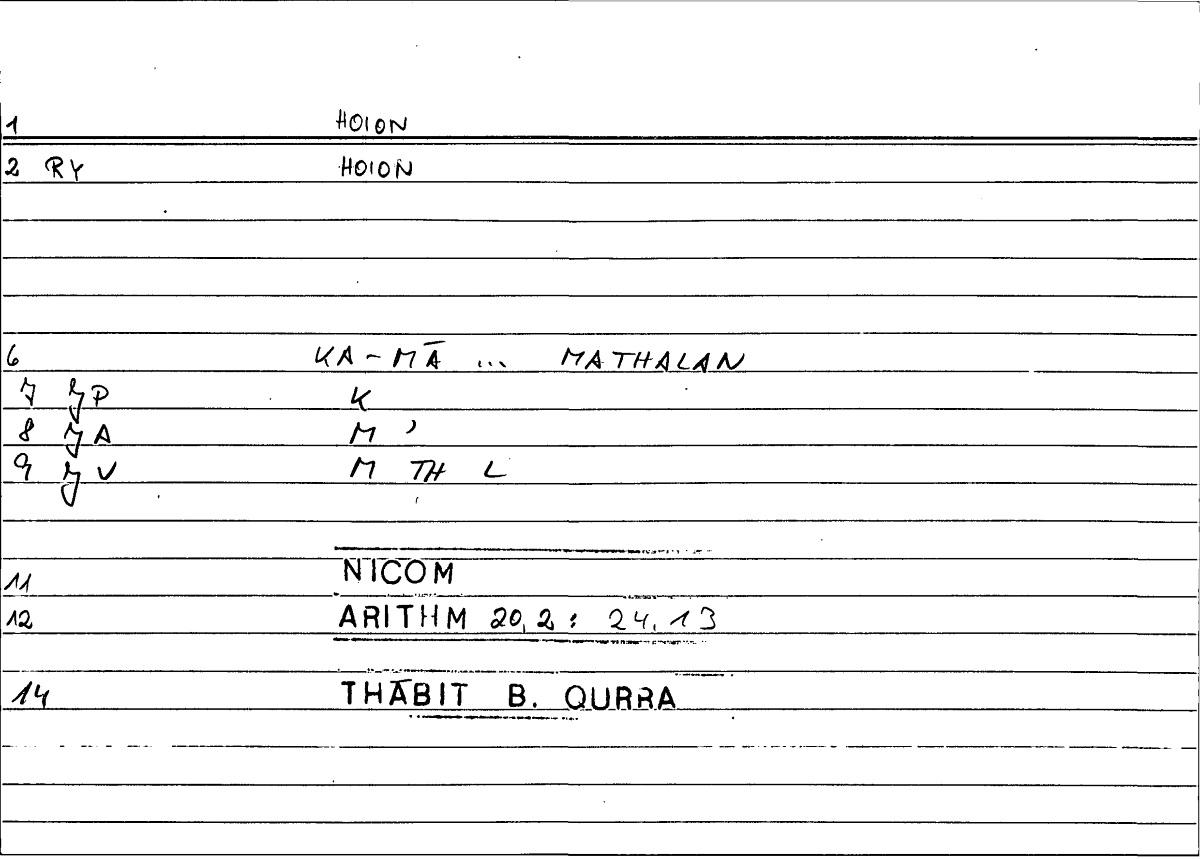 1 HOION
2 RY HOION
6 KA-MĀ ... MATHALAN
7 YP K
8 YA M ʾ
9 YV M TH L
11 NICOM
12 ARITHM 20,2 : 24.13
14 THĀBIT B. QURRA